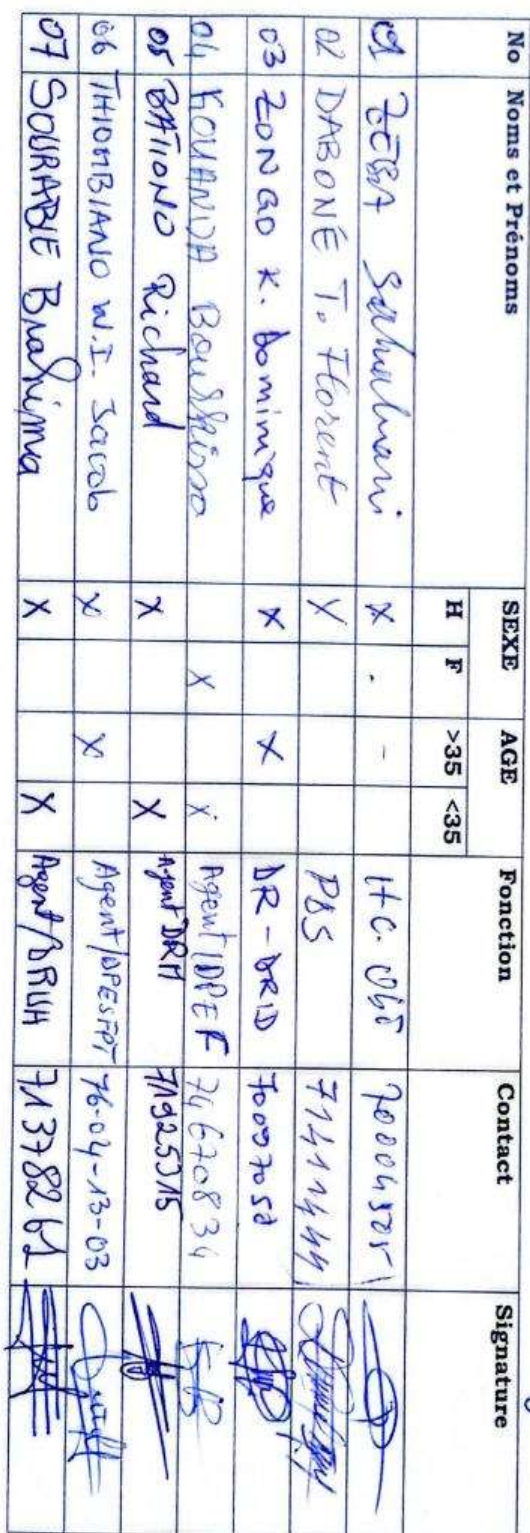 No Noms et Prénoms SEXE AGE Fonction Contact Signature
H F >35 <35
01 Sahabani X - -
02 DABONÉ T. Florent X PDS 71411444
03 ZONGO K. Dominique X X DR-DRID
04 KOUANDA Bourkissa X X Agent/DPEF 74670834
05 BATIONO Richard X X Agent DRH 71925315
06 THIOMBIANO W.I. Jacob X X Agent/DPESFPT 76-04-13-03
07 SOURABIE Brahima X X Agent/DRUH 71378261